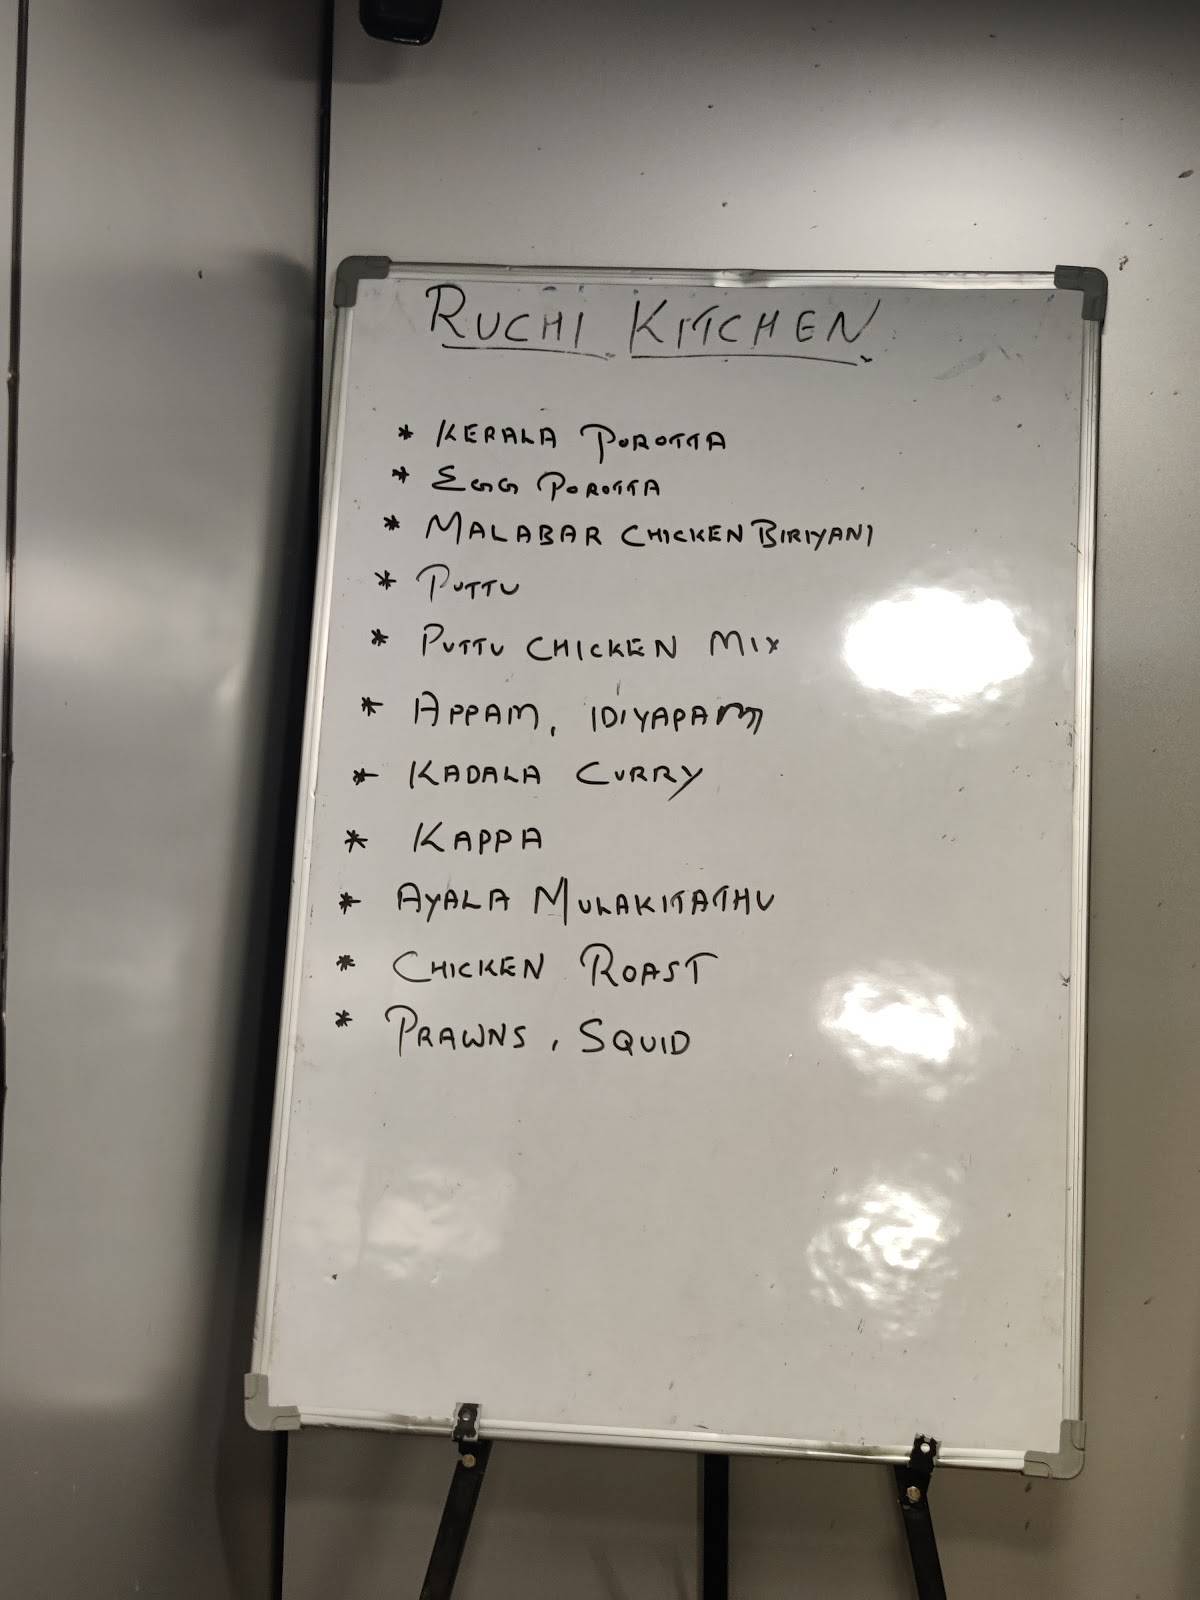 RUCHI KITCHEN
* KERALA POROTTA
* EGG POROTTA
* MALABAR CHICKEN BIRIYANI
* PUTTU
* PUTTU CHICKEN MIX
* APPAM, IDIYAPAM
* KADALA CURRY
* KAPPA
* AYALA MULAKITATHU
* CHICKEN ROAST
* PRAWNS, SQUID